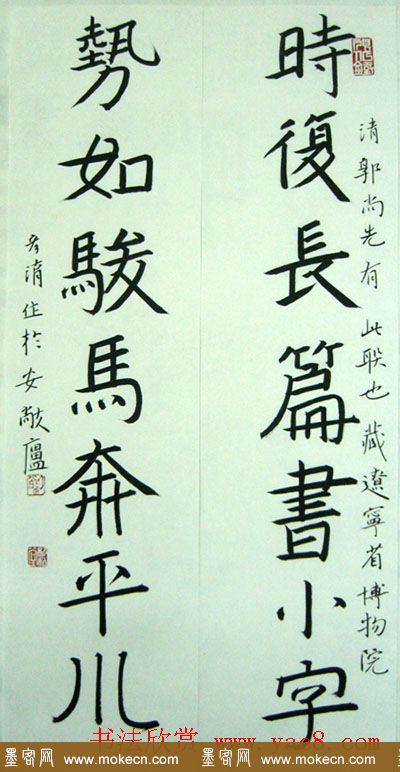 時復長篇書小字
清郭尚先有此联也藏遼寧省博物院
勢如駿馬奔平川
於安敞廬
书法欣赏 www.yac8.com
墨客网 墨客网
www.mokecn.com www.mokecn.com